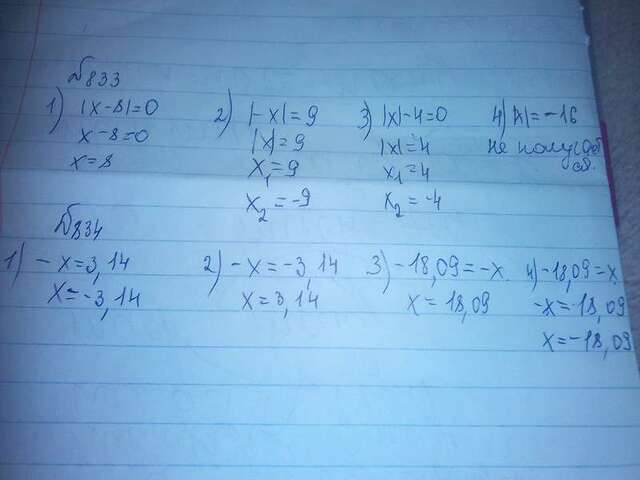 №833
1) |x-8|=0 2) |-x|=9 3) |x|-4=0 4) |x|=-16
x-8=0 |x|=9 |x|=4 не получает
x=8 x₁=9 x₁=4 ся.
x₂=-9 x₂=-4
№834
1) -x=3,14 2) -x=-3,14 3) -18,09=-x 4) -18,09=x
x=-3,14 x=3,14 x=18,09 -x=-18,09
x=-18,09